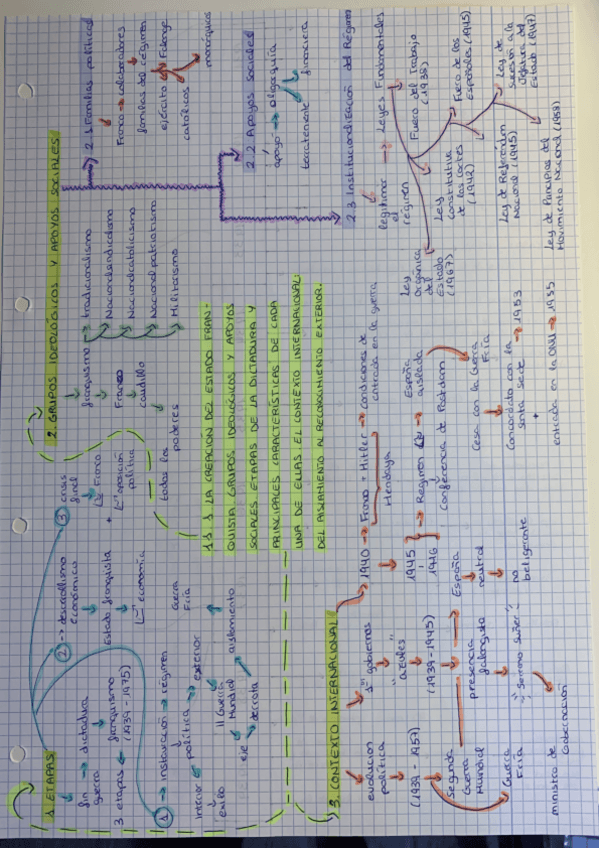 1. ETAPAS
fin → dictadura
guerra
franquismo
3 etapas
(1939 - 1975)
1 → instauración → régimen
política → exterior
interior
exilio
II Guerra
Mundial
eje → derrota
aislamiento
Guerra
Fría
2 → desarrollismo
económico
Estado franquista
economía
3 crisis
final
Franco
+
oposición
política
2. GRUPOS IDEOLÓGICOS Y APOYOS SOCIALES
franquismo
Franco
caudillo
todos los
poderes
tradicionalismo
Nacionalsindicalismo
Nacionalcatolicismo
Nacionalpatriotismo
Militarismo
2.1 Familias políticas
Franco → colaboradores
familias del régimen
ejército
Falange
católicos
monárquicos
2.2 Apoyos sociales
apoyo → oligarquía
terrateniente
financiera
2.3 Institucionalización del Régimen
legitimar → Leyes Fundamentales
el
régimen
Fuero del Trabajo
(1938)
Ley
constitutiva
de las Cortes
(1942)
Fuero de los
Españoles (1945)
Ley de Referendum
Nacional (1945)
Ley de
sucesión a la
Jefatura del
Estado (1947)
Ley de Principios del
Movimiento Nacional (1958)
Ley
Orgánica
del
Estado
(1967)
13.1 LA CREACIÓN DEL ESTADO FRAN-
QUISTA GRUPOS IDEOLÓGICOS Y APOYOS
SOCIALES ETAPAS DE LA DICTADURA Y
PRINCIPALES CARACTERÍSTICAS DE CADA
UNA DE ELLAS EL CONTEXTO INTERNACIONAL:
DEL AISLAMIENTO AL RECONOCIMIENTO EXTERIOR.
3. CONTEXTO INTERNACIONAL
evolución
política
(1939 - 1957)
Segunda
Guerra
Mundial
Guerra
Fría
gobiernos
azules
(1939 - 1945)
presencia
falangista
Serrano Suñer
ministro de
Gobernación
1940 → Franco + Hitler → condiciones de
entrada en la guerra
Hendaya
1945
1946
→ Régimen
España
aislada
Conferencia de Potsdam
España
neutral
no
beligerante
Cesa con la Guerra
Fría
Concordato con la → 1953
santa sede
+
entrada en la ONU → 1955